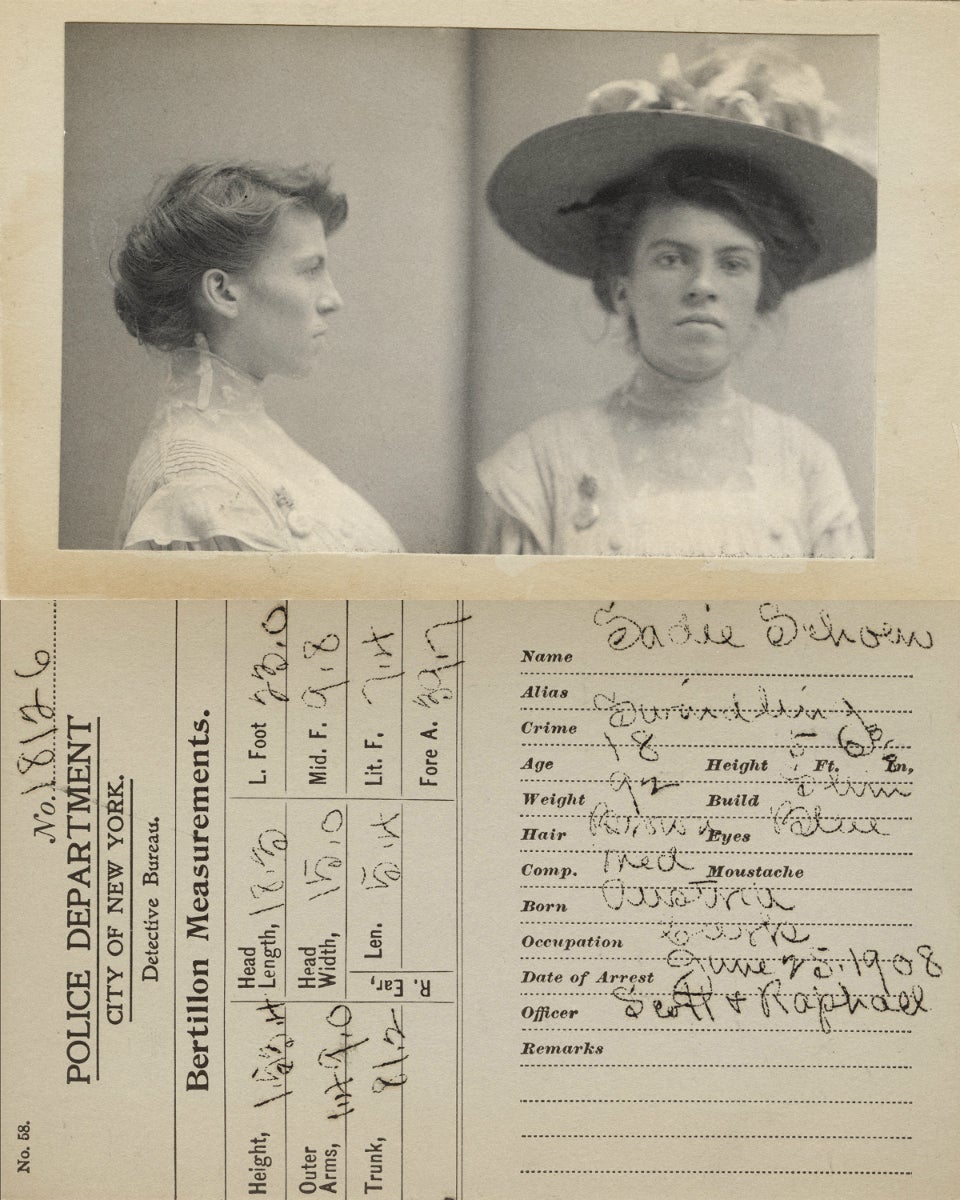 No. 1826
POLICE DEPARTMENT
CITY OF NEW YORK.
Detective Bureau.
No. 58.
Bertillon Measurements.
Height,
Head Length, 18.
L. Foot 23.0
Outer Arms, 149.0
Head Width, 15.0
Mid. F. 9.8
Trunk, 81.2
R. Ear, Len. 5.4
Lit. F. 7.4
Fore A. 39.7
Name Sadie Schoen
Alias
Crime Swindling
Age 18 Height 5 Ft. In.
Weight 92 Build Slim
Hair Brown Eyes Blue
Comp. Med Moustache
Born Austria
Occupation
Date of Arrest June 25. 1908
Officer Scott & Raphael
Remarks